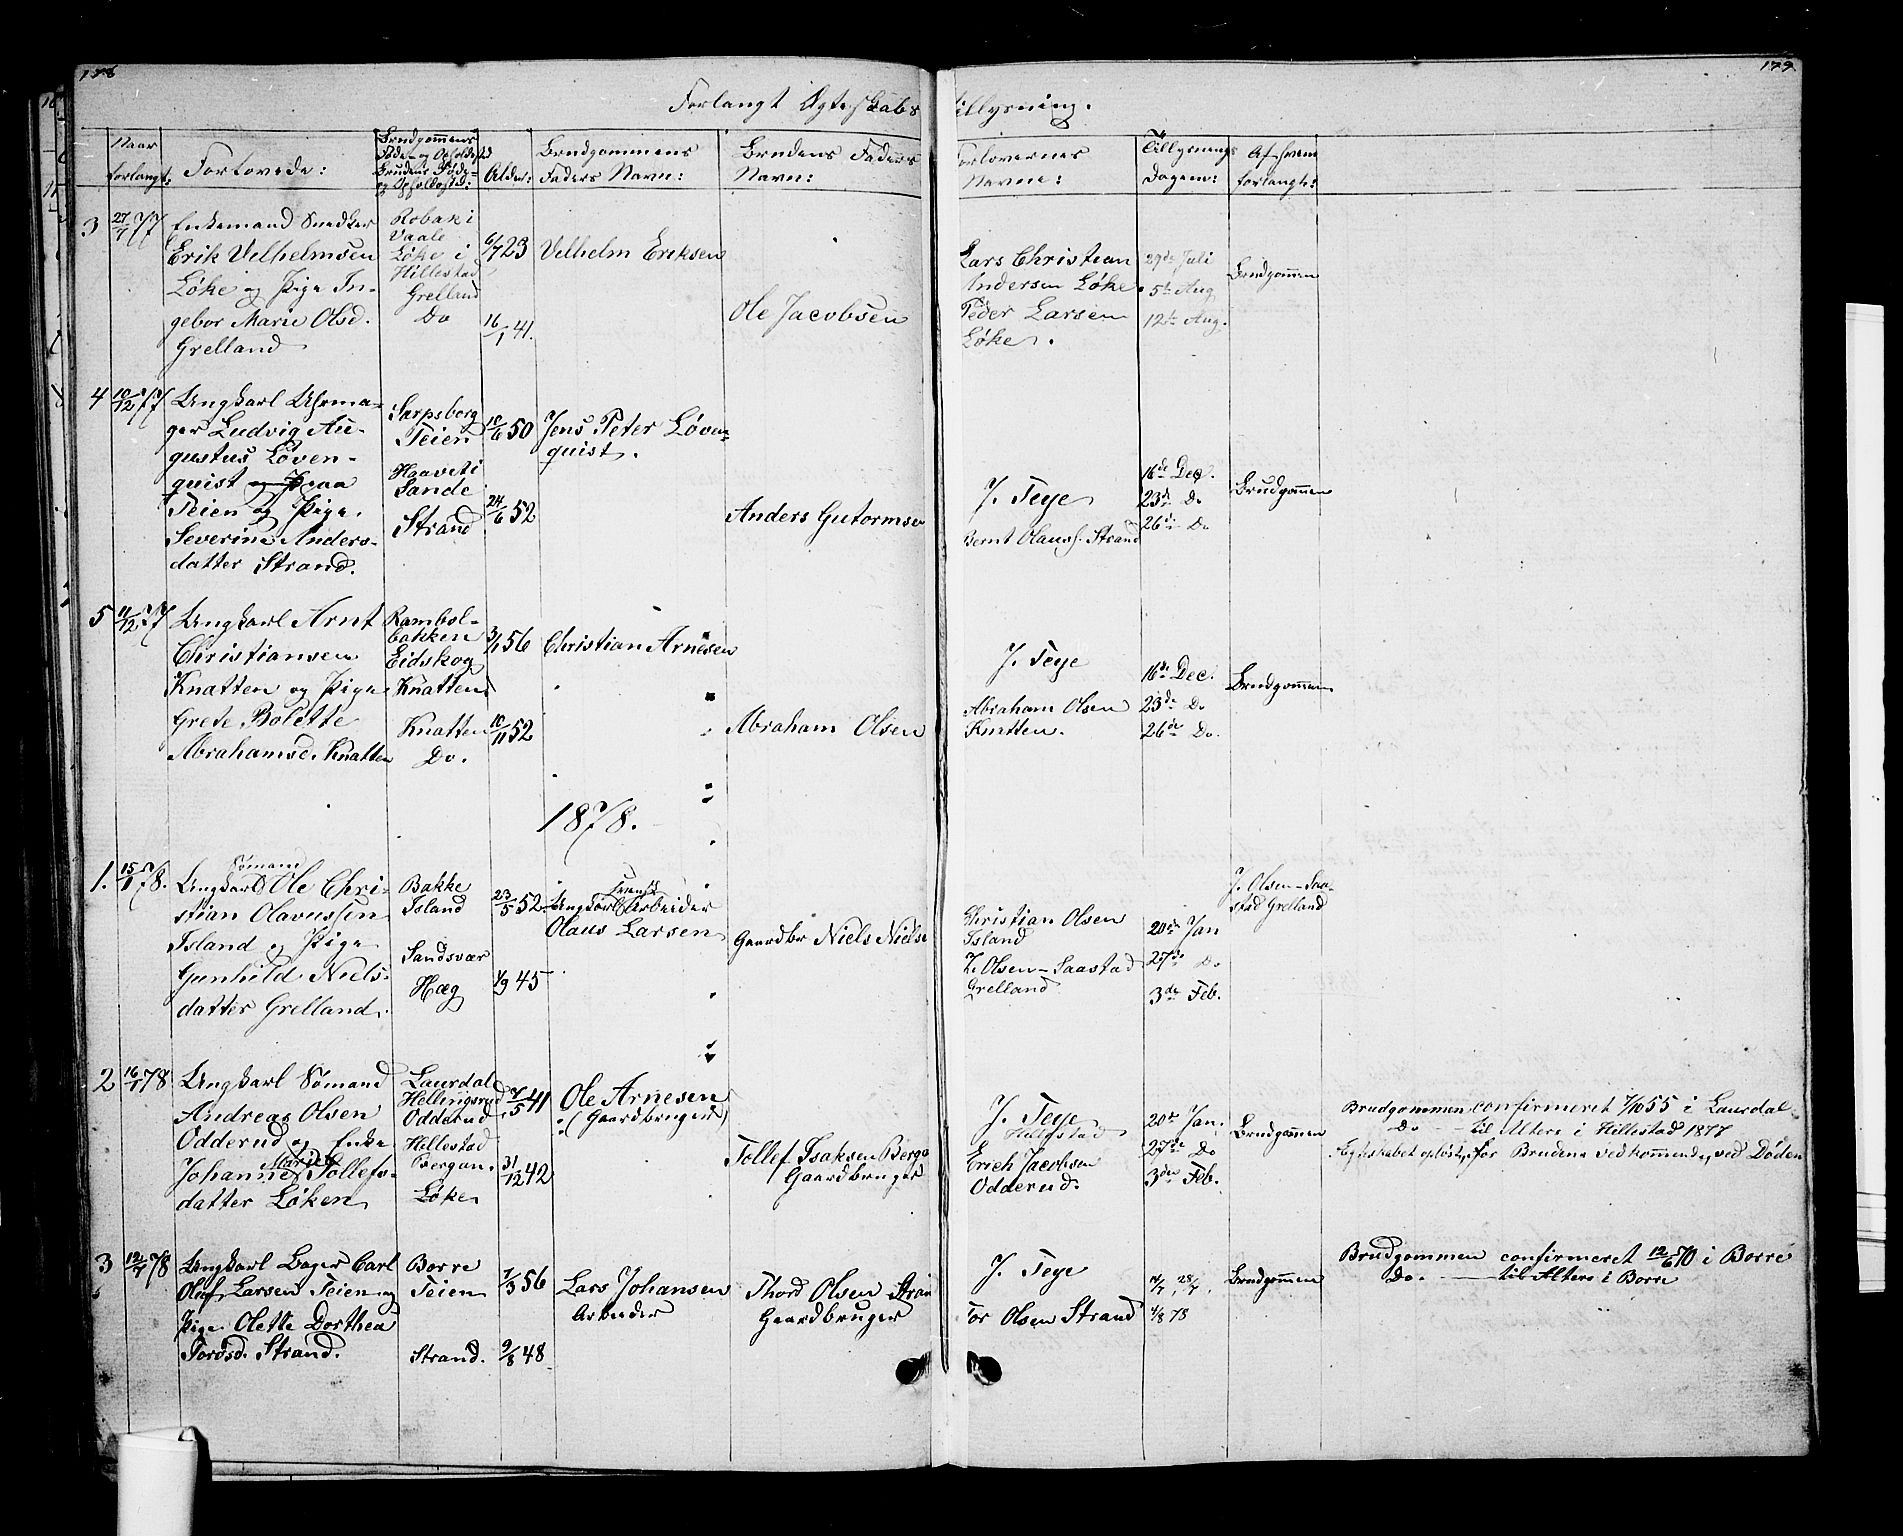 178
179
Forlangt Ægteskabs tillysning.
Naar forlangt:
Forlovede:
Brudgommens Føde- og Opholdssted
Brudens Føde- og Opholdssted:
Alder:
Brudgommens Faders Navn:
Brudens Faders Navn:
Forlovernes Navne:
Tillysnings Dagene:
Af hvem forlangt:
3 27/7 77
Enkemand Snedker
Erik Velhelmsen
Løke og Pige In-
gebor Marie Olsd.
Grelland
Robak i
Vaale
Løke i
Hillestad
Grelland
Do
6/7 23
16/1 41.
Velhelm Eriksen
Ole Jacobsen
Lars Christian
Andersen Løke
Peder Larsen
Løke.
29de Juli
5te Aug
12te Aug.
Brudgommen
4 10/12 77
Ungkarl Uhrma-
ger Ludvig Au-
gustus Løven-
quist
Teien og Pige
Severine Anders-
datter Strand.
Sarpsborg
Teien
Haavet i
Sande
Strand
10/6 50
24/6 52
Jens Peter Løven-
quist.
Anders Gutormsen
J. Teye
Bernt Olauss. Strand
16de Dec.
23de Do
26de Do
Brudgommen
5 11/12 77
Ungkarl Arnt
Christiansen
Knatten og Pige
Grete Bolette
Abrahamsd. Knatten
Rambol-
bakken
Eidskog
Knatten
Knatten
Do.
3/1 56
10/11 52
Christian Arnesen
Abraham Olsen
J. Teye
Abraham Olsen
Knatten.
16de Dec.
23de Do
26de Do.
Brudgommen
1878.
1. 15/1 78.
Sømand
Ungkarl Ole Chri-
stian Olavussen
Island og Pige
Gunhild Niels-
datter Grelland.
Bakke
Island
Sandsvær
Hæg
23/5 52.
1/9 45
Ungkarl Arbeider
Olaus Larsen
Gaardbr Niels Niels
Christian Olsen
Island
J. Olsen-Saastad
Grelland
20de Jan
27de Do
3de Feb.
J. Olsen-Saa-
stad Grelland
2 16/1 78
Ungkarl Sømand
Andreas Olsen
Odderud og Enke
Marie
Johanne Tollefs-
datter Løken
Laurdal
Hellingsrud
Odderud
Hillestad
Bergan
Løke
7/5 41
31/12 42
Ole Arnesen
(Gaardbruger)
Tollef Isaksen Berg
Gaardbruger
J. Teye
Hillestad
Erich Jacobsen
Odderud.
20de Jan.
27de Do
3de Feb.
Brudgommen
Brudgommen confirmeret 7/10 55 i Laurdal
Do — til Alters i Hillestad 1877
Ægteskabet opløst, for Brudens vedkommende, ved Døden
3 12/7 78
Ungkarl Bager Carl
Oluf Larsen Teien og
Pige Olette Dorthea
Tordsd. Strand.
Borre
Teien
Strand.
7/3 56
9/8 48
Lars Johansen
Arbeider
Thord Olsen Stran
Gaardbruger
J. Teye
Tor Olsen Strand
14/7, 28/7,
4/8 78
Brudgommen
Brudgommen confirmeret 12/6 70 i Borre
Do. — til Alters i Borre